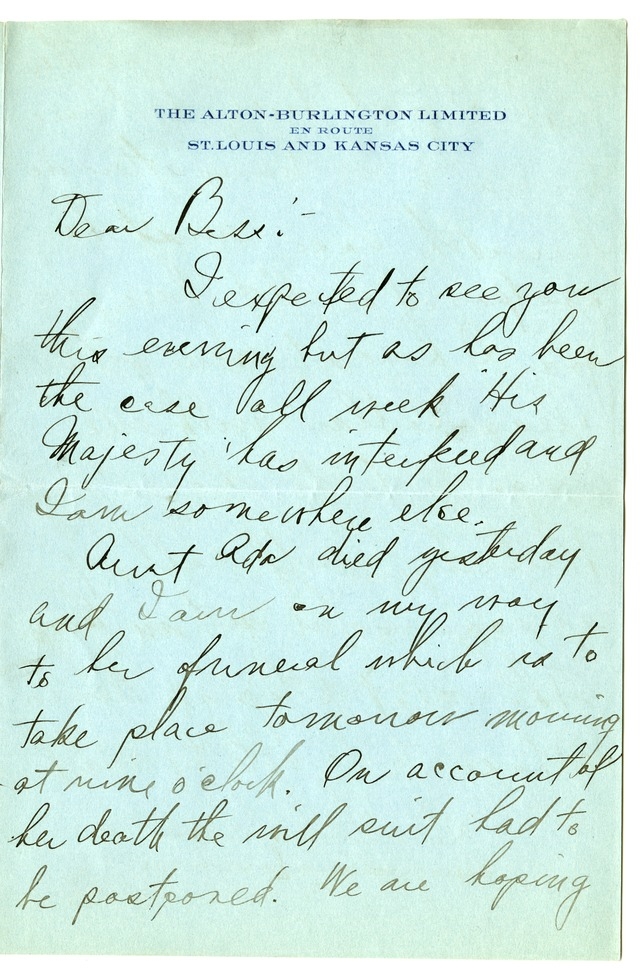 THE ALTON-BURLINGTON LIMITED
EN ROUTE
ST. LOUIS AND KANSAS CITY
Dear Bess:-
I expected to see you
this evening but as has been
the case all week "His
Majesty" has interfered and
I am somewhere else.
Aunt Ada died yesterday
and I am on my way
to her funeral which is to
take place tomorrow morning
at nine o'clock. On account of
her death the will suit had to
be postponed. We are hoping